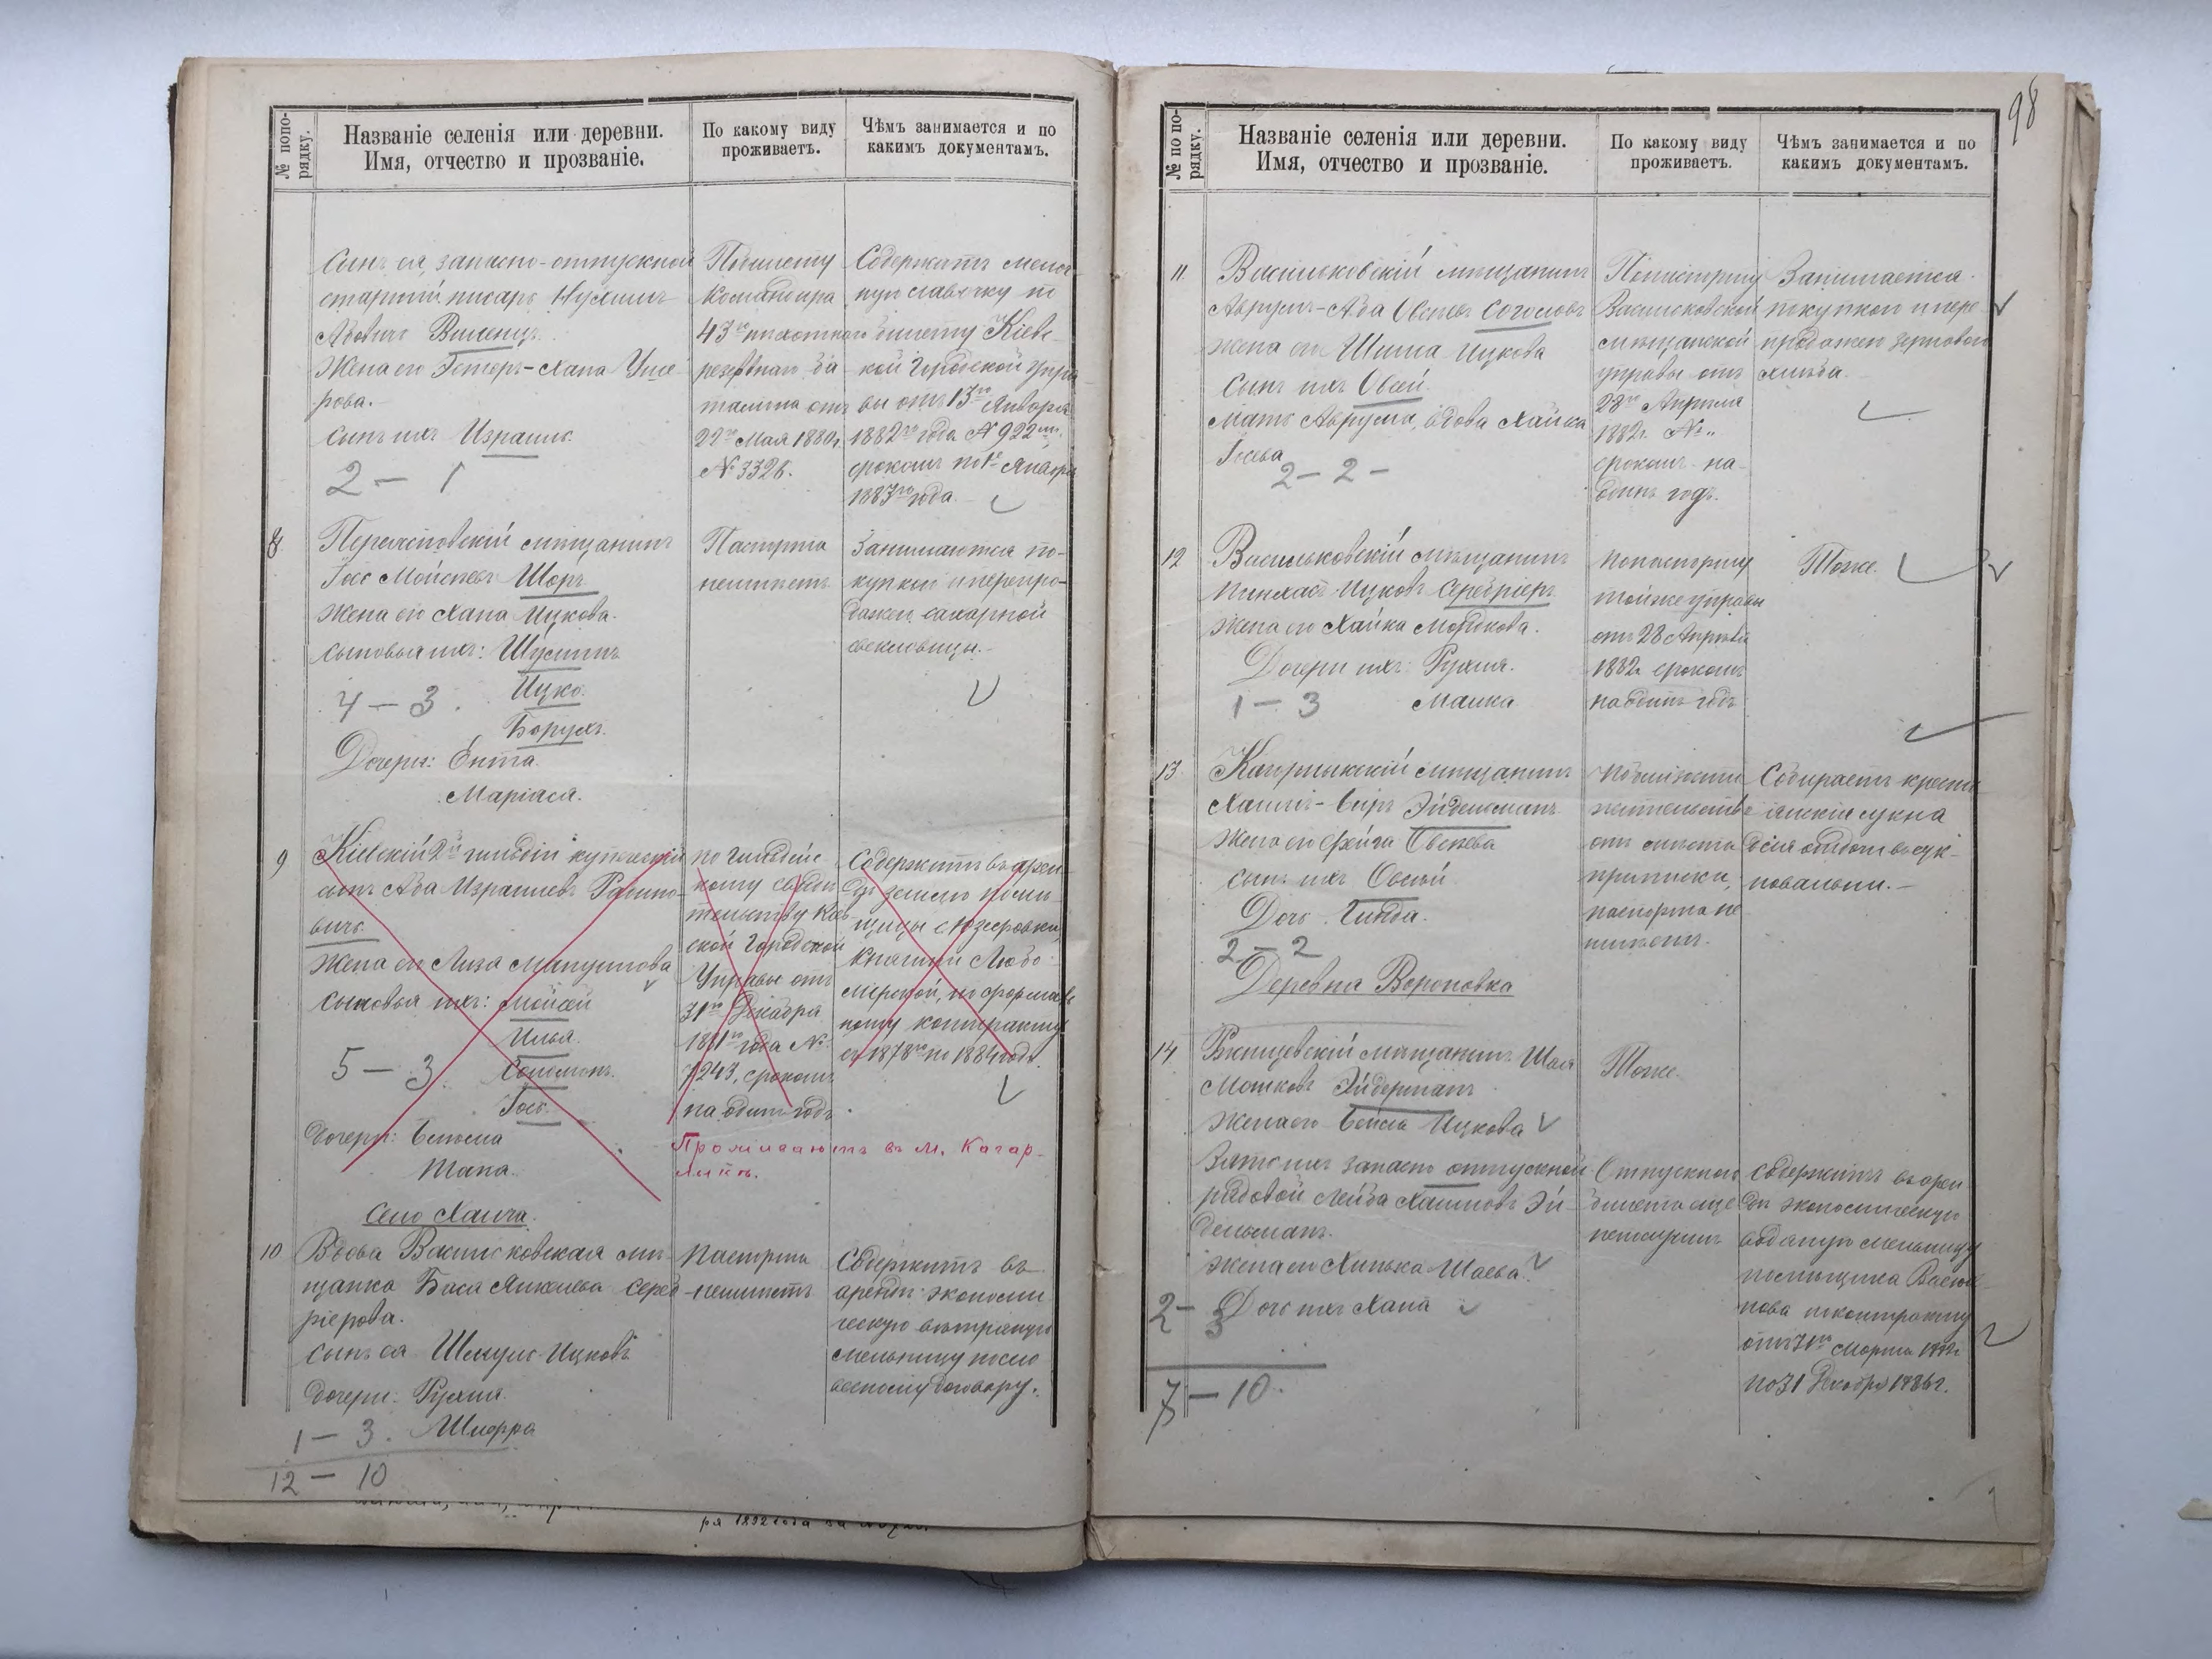 № по по-
рядку.
Названіе селенія или деревни.
Имя, отчество и прозваніе.
По какому виду
проживаетъ.
Чѣмъ занимается и по
какимъ документамъ.
Сынъ ея, запасно-отпускной
старшій писарь Нухимъ
Абовичъ Виленцъ.
Жена его Эстеръ-Хана Ушерова.
рова.
Сынъ ихъ Израиль.
2 – 1
По билету
командира
43го пѣхотнаго
резервнаго ба-
таліона отъ
22го Мая 1880г.
№ 3326.
Содержитъ мелоч-
ную лавочку по
билету Кіевс-
кой Городской Упра
вы отъ 13го Января
1882го года № 922
срокомъ по 1е Января
1883го года.
8
мѣщанинъ
Іосъ Мойсеевъ Шоръ
Жена его Хана Ицкова.
Сыновья ихъ: Шулимъ
4 – 3. Ицко.
Борухъ.
Дочери: Ента.
Маріася.
Паспорта
неимѣетъ
Занимается по-
купкой и перепро-
дажей сахарной
свекловицы.–
9
Кіевскій 2й гильдіи купеческій
сынъ Аба Израилевъ Рабино-
вичъ.
Жена его Лиза
Сыновья ихъ: Мойсей
Илья.
5 – 3. Соломонъ.
Іосъ.
Дочери:
Мана.
по гильдейс-
кому свидѣ-
тельству Кіев-
ской Городской
Управы отъ
31го Декабря
1881го года №
7243, срокомъ
на одинъ годъ.
Содержитъ въ арен-
дѣ землю помѣ-
щицы с. Юзефовки,
Княгини Любо-
мірской, по формаль
ному контракту
съ 1878го по 1884 годъ.
Проживаютъ въ м. Кагар-
лыкъ.
Село Халча.
10
Вдова Васильковская мѣ-
щанка Бася Янкелева Сереб-
ріерова.
Сынъ ея Шмуль Ицковъ
Дочери: Рухля.
1 – 3. Шифра
12 – 10
Паспорта
неимѣетъ
Содержитъ въ
арендѣ экономи
ческую вѣтряную
мельницу посло
весному договору.
ря 1882 года за
98
№ по по-
рядку.
Названіе селенія или деревни.
Имя, отчество и прозваніе.
По какому виду
проживаетъ.
Чѣмъ занимается и по
какимъ документамъ.
11
Васильковскій мѣщанинъ
Аврумъ-Аба Овсеевъ Соголовъ
жена его Шима Ицкова
Сынъ ихъ Овсей.
Мать Аврума, вдова Хайка
Іосева
2 – 2 –
По паспорту
Васильковской
мѣщанской
управы отъ
28го Апрѣля
1882г. №„
срокомъ на
одинъ годъ.
Занимается
покупкой и пере-
продажей зерноваго
хлѣба.
12
Васильковскій мѣщанинъ
Пинхасъ Ицковъ Серебріеръ
Жена его Хайка Мордкова.
Дочери ихъ: Рухля.
1 – 3 Малка
по паспорту
той же управы
отъ 28 Апрѣля
1882 срокомъ
на одинъ годъ
Тоже.
13
Кагарлыкскій мѣщанинъ
Хаимъ-Беръ Эйдельманъ
Жена его Фейга Овсеева
Сынъ ихъ Овсей.
Дочь Гинда.
2 – 2
Деревня Вороновка
жительства
отъ мѣста
приписки,
паспорта не
имѣетъ.
Собираетъ кресть
янскія сукна
для отдачи въ сук-
новальни.–
14
Ржищевскій мѣщанинъ Шая
Мошковъ Эйдерманъ
Жена его Бейла Ицкова
Зять ихъ запасно отпускной
рядовой Лейба Хаимовъ Эй-
дельманъ.
Жена его Хинька Шаева.
2 – 3 Дочь ихъ Хана
7 – 10.
Тоже.
Отпускного
билета еще
неполучилъ
Содержитъ въ арен
дѣ экономическую
водяную мельницу
помѣщика
нова по контракту
отъ 31го Марта
по 31 Декабря 1886г.